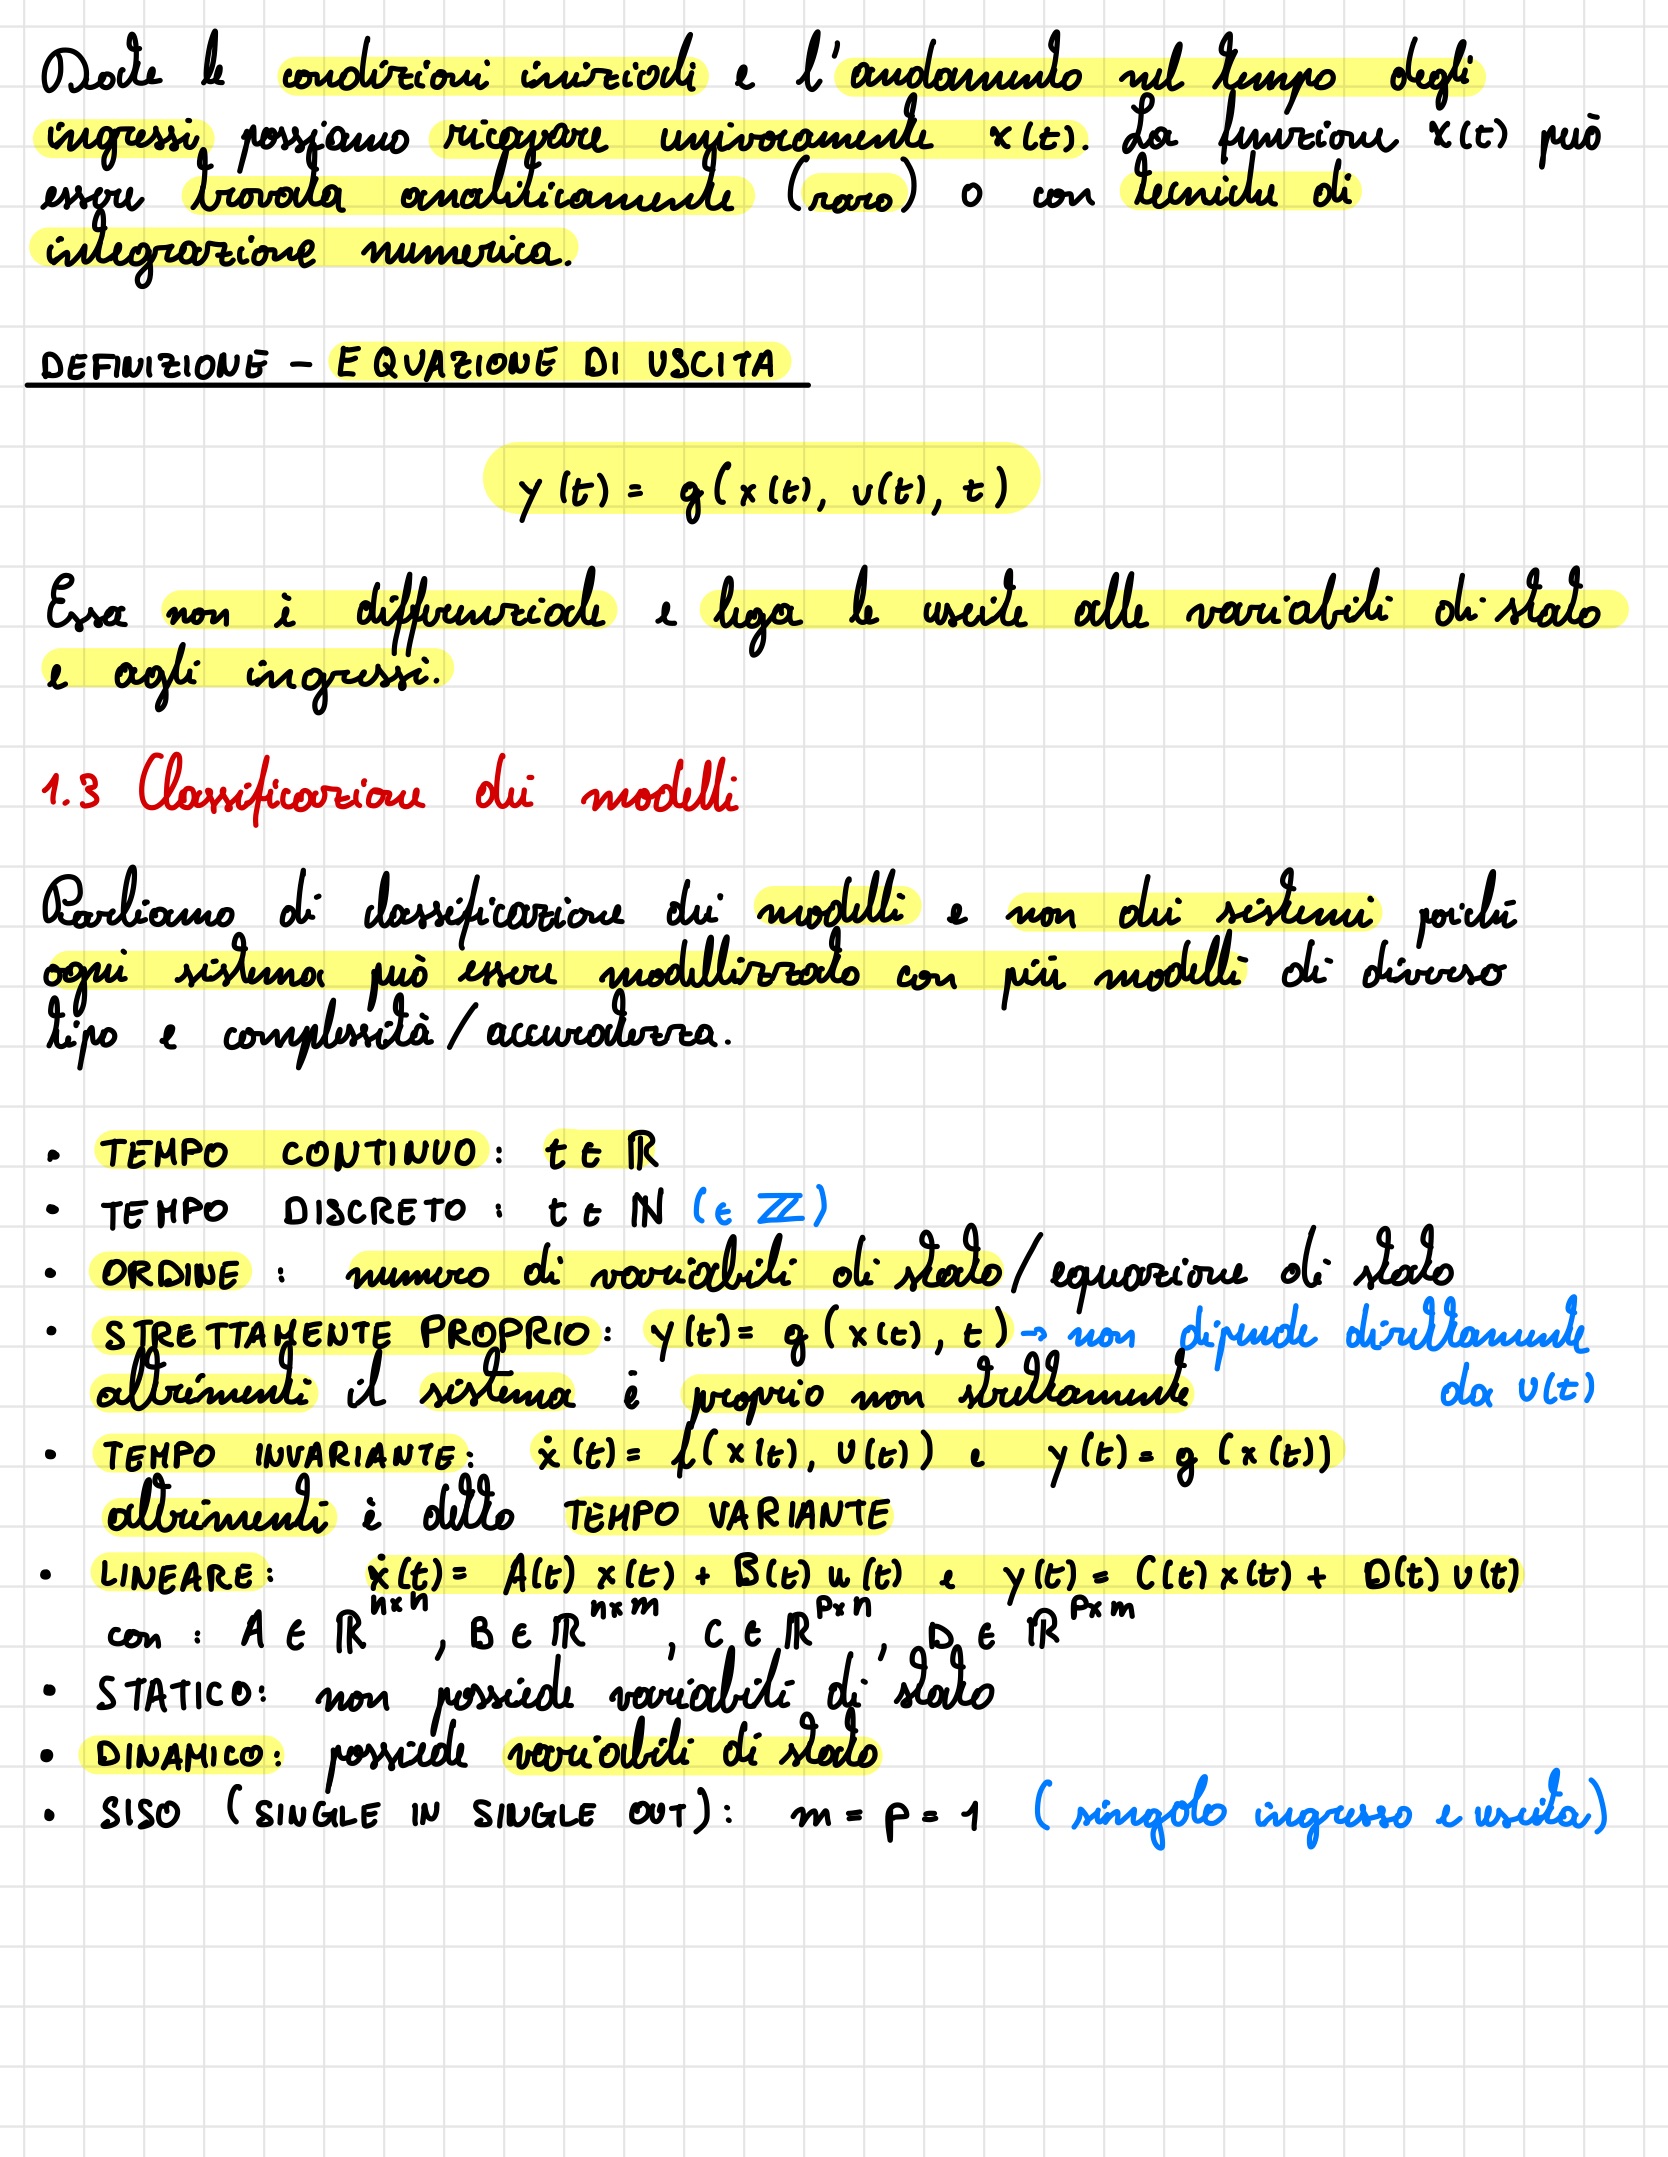 Date le condizioni iniziali e l'andamento nel tempo degli
ingressi possiamo ricavare univocamente x(t). La funzione x(t) può
essere trovata analiticamente (raro) o con tecniche di
integrazione numerica.
DEFINIZIONE - EQUAZIONE DI USCITA
y(t) = g(x(t), u(t), t)
Essa non è differenziale e lega le uscite alle variabili di stato
e agli ingressi.
1.3 Classificazione dei modelli
Parliamo di classificazione dei modelli e non dei sistemi poiché
ogni sistema può essere modellizzato con più modelli di diverso
tipo e complessità/accuratezza.
• TEMPO CONTINUO: t ∈ ℝ
• TEMPO DISCRETO: t ∈ ℕ (∈ ℤ)
• ORDINE: numero di variabili di stato/equazione di stato
• STRETTAMENTE PROPRIO: y(t) = g(x(t), t) → non dipende direttamente
da u(t)
altrimenti il sistema è proprio non strettamente
• TEMPO INVARIANTE: ẋ(t) = f(x(t), u(t)) e y(t) = g(x(t))
altrimenti è detto TEMPO VARIANTE
• LINEARE: ẋ(t) = A(t) x(t) + B(t) u(t) e y(t) = C(t) x(t) + D(t) u(t)
con: A ∈ ℝ^{n×n}, B ∈ ℝ^{n×m}, C ∈ ℝ^{p×n}, D ∈ ℝ^{p×m}
• STATICO: non possiede variabili di stato
• DINAMICO: possiede variabili di stato
• SISO (SINGLE IN SINGLE OUT): m = p = 1 (singolo ingresso e uscita)